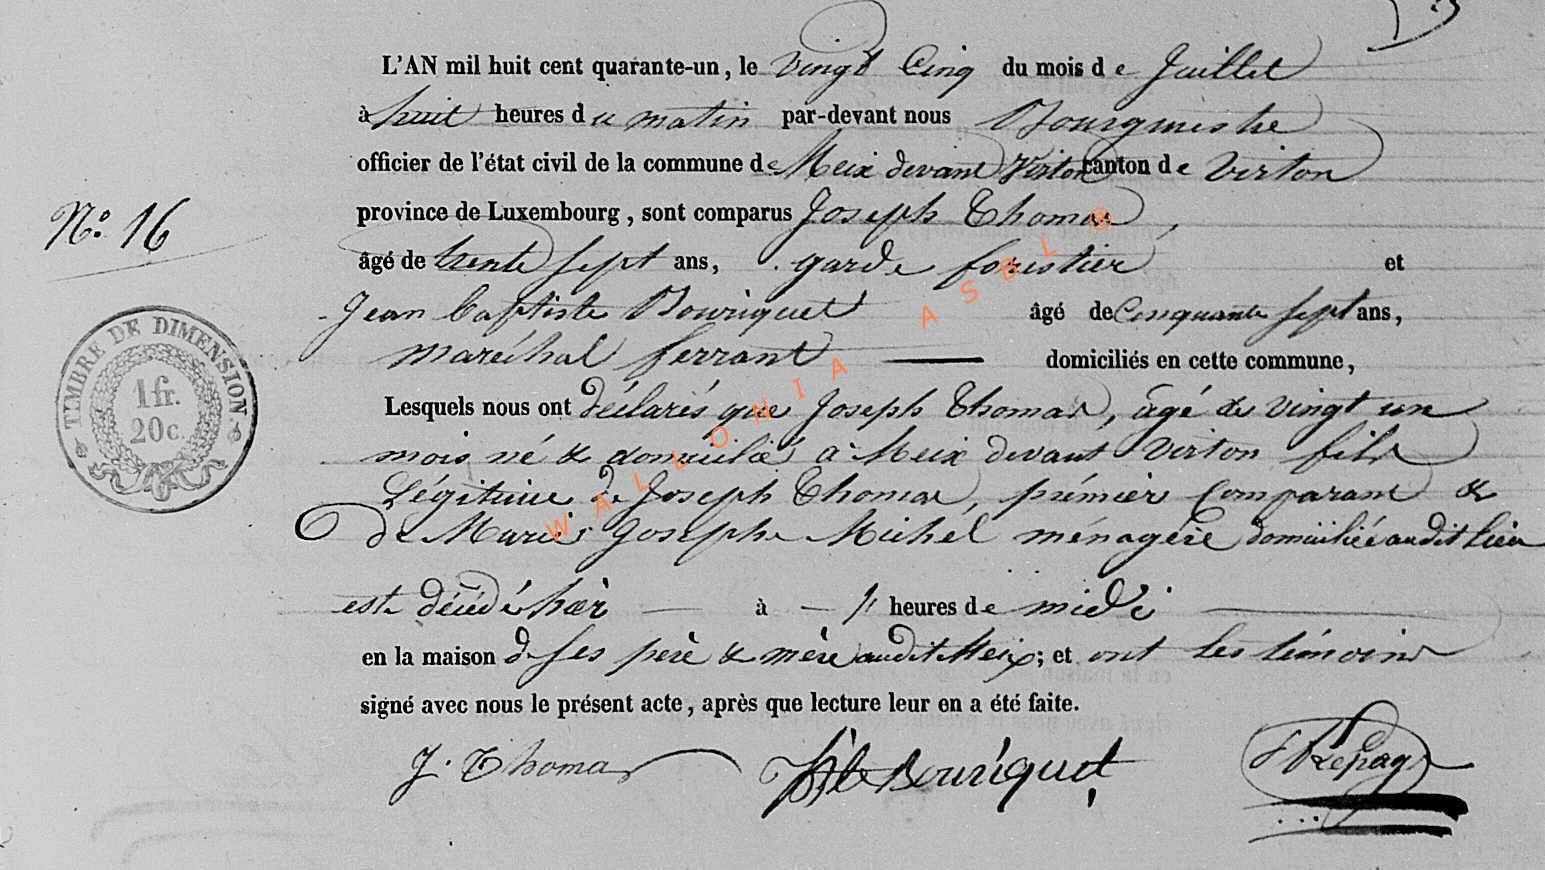 L'AN mil huit cent quarante-un, le vingt Cinq du mois de Juillet
à huit heures du matin par-devant nous Bourgmestre
officier de l'état civil de la commune de Meix devant Virton canton de Virton
province de Luxembourg, sont comparus Joseph Thomas,
N° 16
âgé de trente sept ans, garde forestier et
Jean Baptiste Bouriquet âgé de Cinquante sept ans,
maréchal ferrant domiciliés en cette commune,
TIMBRE DE DIMENSION
1 fr.
20 c.
Lesquels nous ont déclarés que Joseph Thomas, âgé de vingt un
mois né & domicilié à Meix devant Virton fils
Légitime de Joseph Thomas, prémier Comparant &
de Marie Joseph Michél ménagère domiciliée audit Lieu
est décédé hier à heures de midi
en la maison de ses père & mère audit Meix; et ont les témoins
signé avec nous le présent acte, après que lecture leur en a été faite.
J. Thomas Bouriquet Lepage
WALLONIA ASBL ®